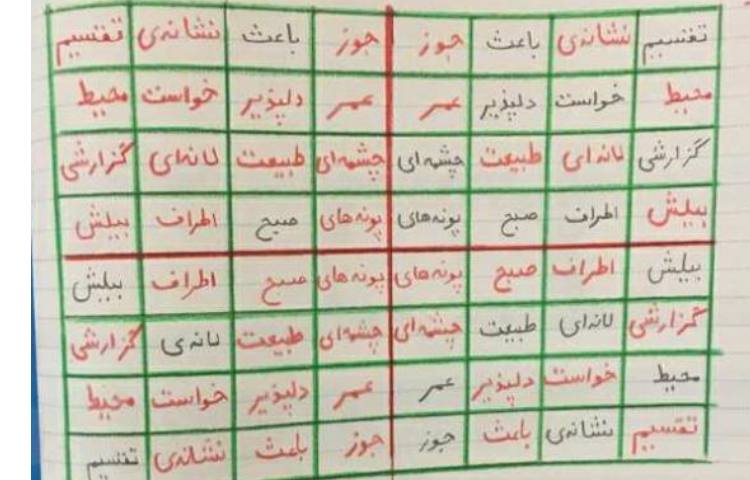 تقسیم نشانه‌ی باعث جوز جوز باعث نشانه‌ی تقسیم
محیط خواست دلپذیر عمر عمر دلپذیر خواست محیط
گزارشی لانه‌ای طبیعت چشمه‌ای چشمه‌ای طبیعت لانه‌ای گزارشی
بیلش اطراف صبح پونه‌های پونه‌های صبح اطراف بیلش
بیلش اطراف صبح پونه‌های پونه‌های صبح اطراف بیلش
گزارشی لانه‌ای طبیعت چشمه‌ای چشمه‌ای طبیعت لانه‌ی گزارشی
محیط خواست دلپذیر عمر عمر دلپذیر خواست محیط
تقسیم نشانه‌ی باعث جوز جوز باعث نشانه‌ی تقسیم